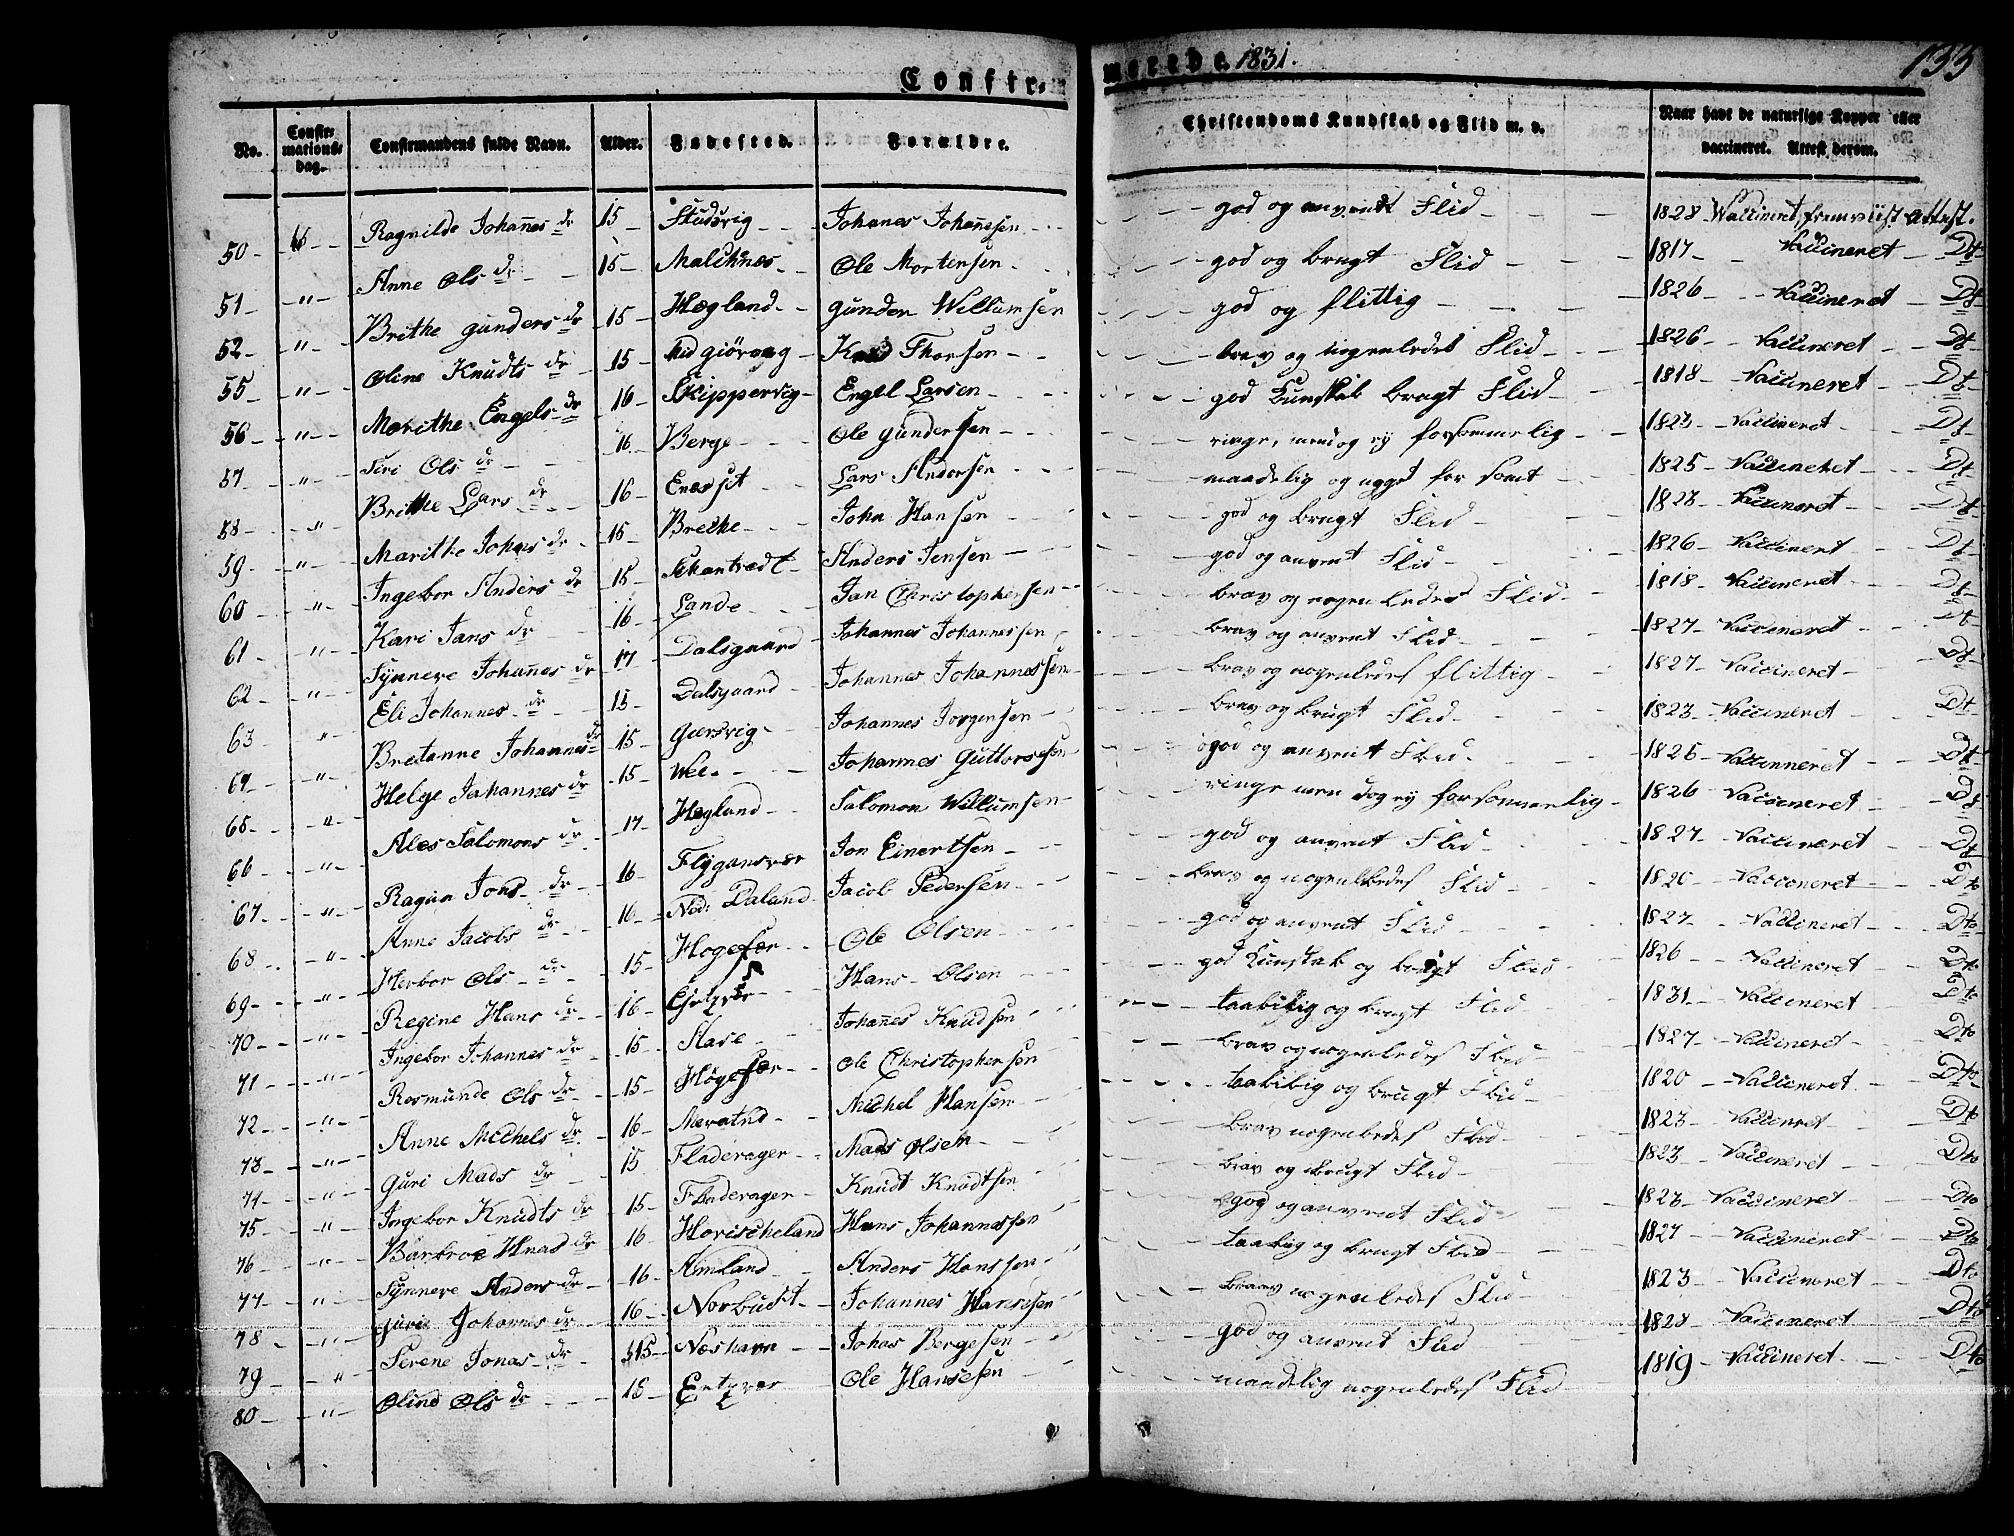 Confir-
merede 1831.
133
No.
Confir-
mations-
dag.
Confirmandens fulde Navn.
Alder.
Fødested.
Forældre.
Christendoms Kundskab og Flid m. v.
Naar havt de naturlige Kopper eller
vaccineret. Attest derom.
50 - 16 - Ragnilde Johannes dr 15 - Studsvig - Johanes Johannesen - god og anvendt Flid - 1828 - Waccineret, fremviist attest.
51 - " - Anne Ols dr 15 - Malchnæs - Ole Mortensen - god og brugt Flid - 1817 - Vaccineret - Dt
52 - " - Brithe gunders dr - 15 - Hægland - gunder Willumsen god og flittig - 1826 - Vaccineret - Dt
55 - " - Oline Knudts dr - 15 - Thorsen - brav og nogenledes Flid - 1826 - Vaccineret - Dt
56 - " - Marithe Engels dr - 16 - Skippervig - Engel Larsen - god Kunskab brugt Flid - 1818 - Vaccineret - Dt
57 - " - Siri Ols dr - 16 Berge - Ole gundersen - ringe, men dog ey forsømmelig - 1823 - Vaccineret - Dt
58 - " - Brithe Lars dr - 16 Lars Andersen - maadelig og 1825 - Vaccineret - Dt
59 - " - Marithe Johns dr - 15 - Breche - John Hansen - god og brugt Flid - 1823 - Vaccineret - Dt
60 - " - Ingebor Anders dr - 15 - Anders Jensen - god og anvent Flid - 1826 - Vaccinert - Dt
61 - " - Kari Jans dr - 16 - Lande - Jan Christophersen - brav og nogenledes Flid - 1818 - Vaccineret - Dt
62 - " - Synneve Johannes dr - 17 - Dalsgaard - Johannes Johannessen - brav og anvent Flid - 1827 - Vaccineret - Dt
63 - " - Eli Johannes dr - 15 - Dalsgaard - Johannes Johannessen - brav og nogenledes flittig - 1827 - Vaccineret - Dt
64 - " - Bretanne Johannes dr - 15 - Giersvig - Johannes Jorgensen - brav og brugt Flid - 1823 - Vaccineret - Dt
65 - " - Helge Johannes dr - 15 - Wee - Johannes Guttormsen - god og anvent Flid - 1825 - Vaccinneret - Dt
66 - " - Ales Salomons dr - 17 - Hægland - Salomon Willumsen - ringe men dog ey forsømmelig - 1826 - Vaccineret - Dt
67 - " - Ragna Jons dr - 16 - Flygansvær Jon Einertsen - god og anvent Flid - 1827 - Vaccineret - Dt
68 - " - Anne Jacobs dr - 16 - Nod: Daland Jacob Pedersen - brav og nogenledes Flid - 1820 - Vaccineret - Dto
69 - " - Herbor Ols dr - 15 - Ole Olsen - god og anvent Flid - 1827 - Vaccineret - Dto
70 - " - Regine Hans dr - 16 - Hans Olsen - god Kunskab og brugt Flid - 1826 - Vaccineret - Dto
71 - " - Ingebor Johannes dr - 15 - Johannes Knudsen - taalelig og brugt Flid - 1831 - Vaccineret - Dto
72 - " - Rosmunde Ols dr - 15 - Ole Christophersen - brav og nogenledes Flid - 1827 - Vaccineret - Dto
73 - " - Anne Michels dr - 16 - Michel Hansen - taalelig og brugt Flid - 1820 - Vaccineret - Dto
74 - " - Guri Mads dr - 15 Fladerager - Mads Olsen - brav nogenledes Flid - 1823 - Vaccineret - Dto
75 - " - Ingebor Knudts dr - 15 - Fladerager - Knudt Knudtsen brav og brugt Flid - 1823 - Vaccineret - Dto
76 - " - Barbroe Hnas dr - 16 - Horischeland Hans Johannessen - god og anvendt Flid - 1823 - Vaccineret - Dto
77 - " - Synneve Anders dr - 16 - Amland - Anders Hanssen - taalig og brugt Flid - 1827 - Vaccineret - Dto
78 - " - gurie Johannes dr - 16 - Johannes Hansesen - brav nogenledes Flid - 1823 - Vaccineret - Dto
79 - " - Serene Jonas dr - 15 - Næshavn - Johas Bergesen - god og anvent Flid - 1828 - Vaccineret - Dto
80 - " - Olind Ols dr - 16 - Entzvær Ole Hansesen - maadelig nogenledes Flid 1819 - Vaccineret - Dto